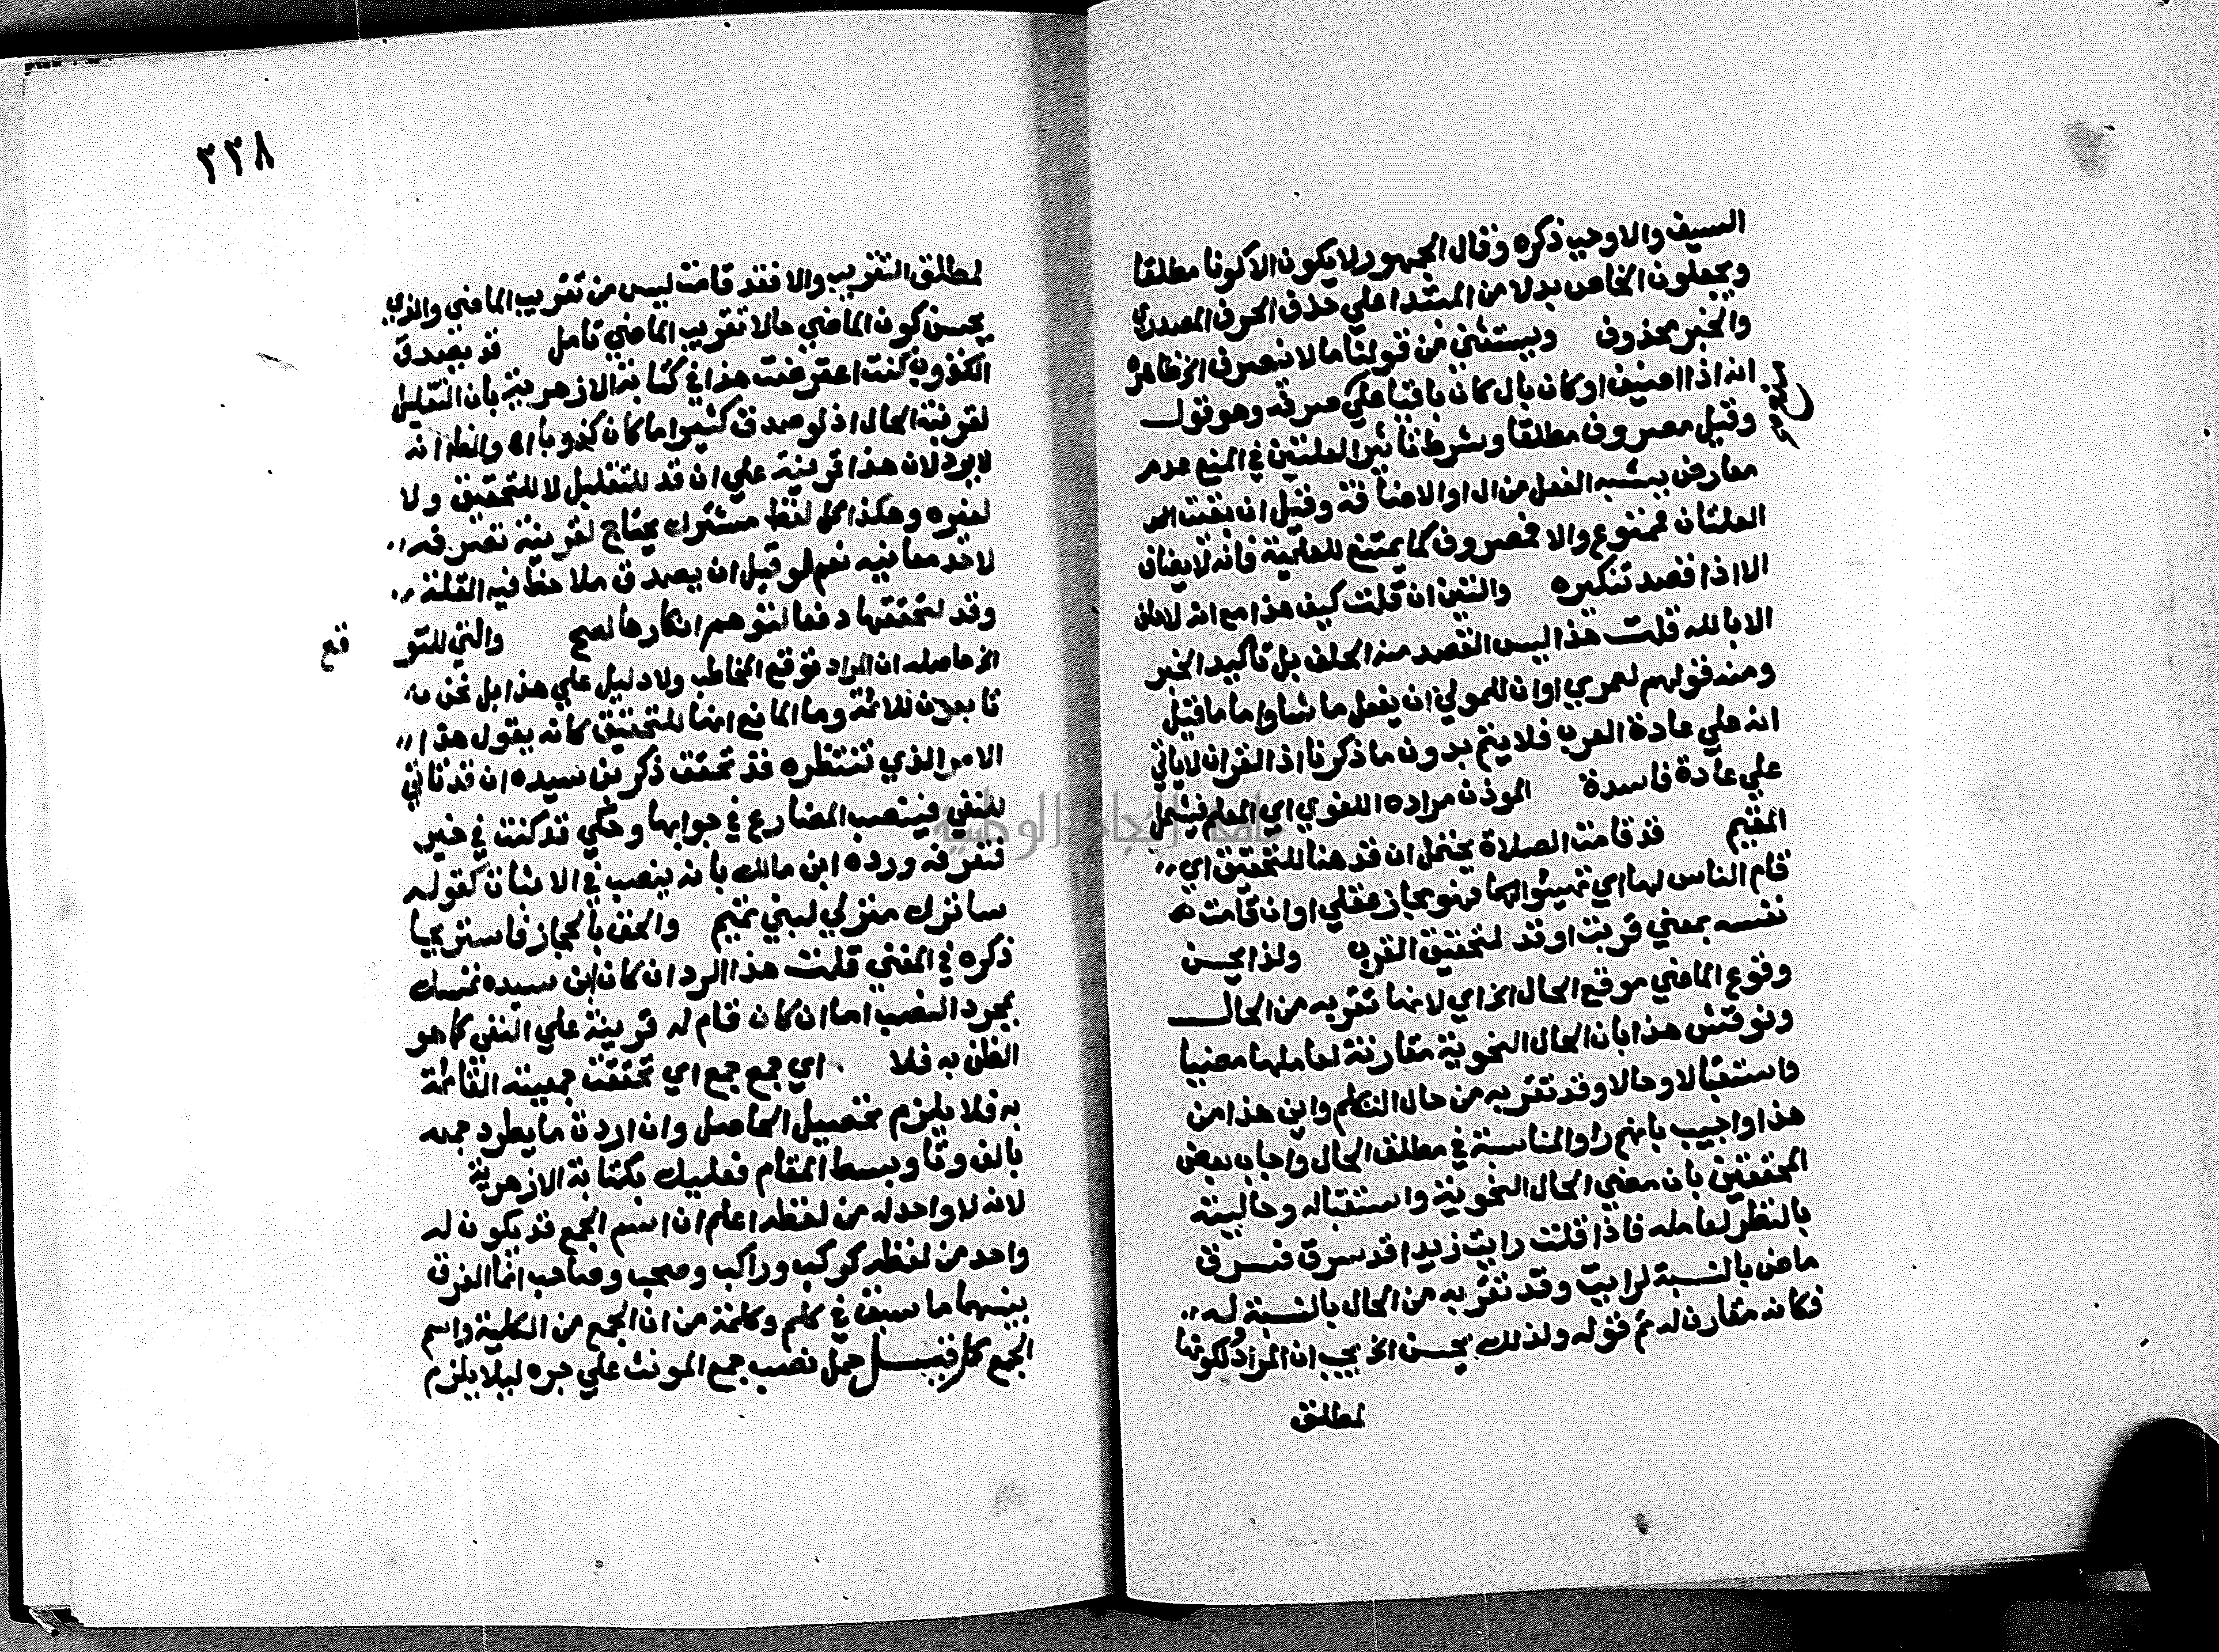 السيف والاوجب ذكره وقال الجمهور لا يكون الا كونا مطلقا
ويجعلون الخاص بدلا من المبتدا علي حذف الحرف المصدري
والخبر محذوف ويستثني من قولنا ما لا ينصرف الخ ظاهره
انه اذا اضيف او كان بال كان باقيا علي صرفه وهو قول
وقيل مصروف مطلقا وشرط تاثير العلتين في المنع عدم
معارض يشبه الفعل من ال او الاضافة وقيل ان بقيت
العلتان فممنوع والا فمصروف كما يمتنع للعلمية فانه لا يضاف
الا اذا قصد تنكيره والتين ان قلت كيف هذا مع انه لا حلف
الا بالله قلت هذا ليس القصد منه الحلف بل تاكيد الخبر
ومنه قولهم لعمري او ان للمولي ان يفعل ما شاء واما ما قيل
انه علي عادة العرب فلا يتم بدون ما ذكرنا اذ القران لا ياتي
علي عادة فاسدة الموذن مراده اللغوي اي المعلم فيشمل
المقيم قد قامت الصلاة يحتمل ان قد هنا للتحقيق اي
قام الناس لها اي تهيئوا لها فهو مجاز عقلي او ان قامت
نفسه بمعني قربت او قد لتحقيق القرب ولذا يحسن
وقوع الماضي موقع الحال الخ اي لانها تقربه من الحال
ونوقش هذا بان الحال النحوية مقارنة لعاملها مضيا
واستقبالا وحالا وقد تقربه من حال التكلم واين هذا من
هذا واجيب بانهم راوا المناسبة في مطلق الحال واجاب بعض
المحققين بان مضي الحال النحوية واستقباله وحاليته
بالنظر لعامله فاذا قلت رايت زيدا قد سرق فسرق
ماض بالنسبة لرايت وقد تقربه من الحال بالنسبة له
فكانه مقارن له ثم قوله ولذلك يحسن الخ يجب ان المراد لكونها
لمطلق
٢٣٨
لمطلق التقريب والا فقد قامت ليس من تقريب الماضي والذي
يحسن كون الماضي حالا تقريب الماضي تامل قد يصدق
الكذوب كنت اعترضت هذا في كتابة الازهرية بان التقليل
لقرينة الحال اذ لو صدق كثيرا ما كان كذوبا اه والظ انه
لا يرد لان هذا قرينة علي ان قد للتقليل لا للتحقيق ولا
لغيره وهكذا كل لفظ مشترك يحتاج لقرينة تصرفه
لاحد معانيه نعم لو قيل ان يصدق ملاحظ فيه القلة
وقد لتحققها دفعا لتوهم انكارها لصح والتي للتو
قع
الخ حاصله ان المراد توقع المخاطب ولا دليل علي هذا بل نحن
تابعون للائمة وما المانع انها للتحقيق كانه يقول هذا
الامر الذي تنتظره قد تحقق ذكر بن سيده ان قد تاتي
للنفي فينصب المضارع في جوابها وحكي قد كنت في خير
فتعرفه ورده ابن مالك بانه ينصب في الاثبات كقوله
ساترك منزلي لبني تميم والحق بالحجاز فاستريحا
ذكره في المغني قلت هذا الرد ان كان ابن سيده تمسك
بمجرد النصب اما ان كان قام له قرينة علي النفي كما هو
الظن به فلا اي جمع جمع اي تحققت جمعيته القائمة
به فلا يلزم تحصيل الحاصل وان اردت ما يطرد جمعه
بالف وتا وبسط المقام فعليك بكتابة الازهرية
لانه لا واحد له من لفظه اعلم ان اسم الجمع قد يكون له
واحد من لفظه كركب وراكب وصحب وصاحب انما الفرق
بينهما ما سبق في كلم وكلمة من ان الجمع من الكلية واسم
الجمع كل قيل حمل نصب جمع المونث علي جره ليلا يلزم